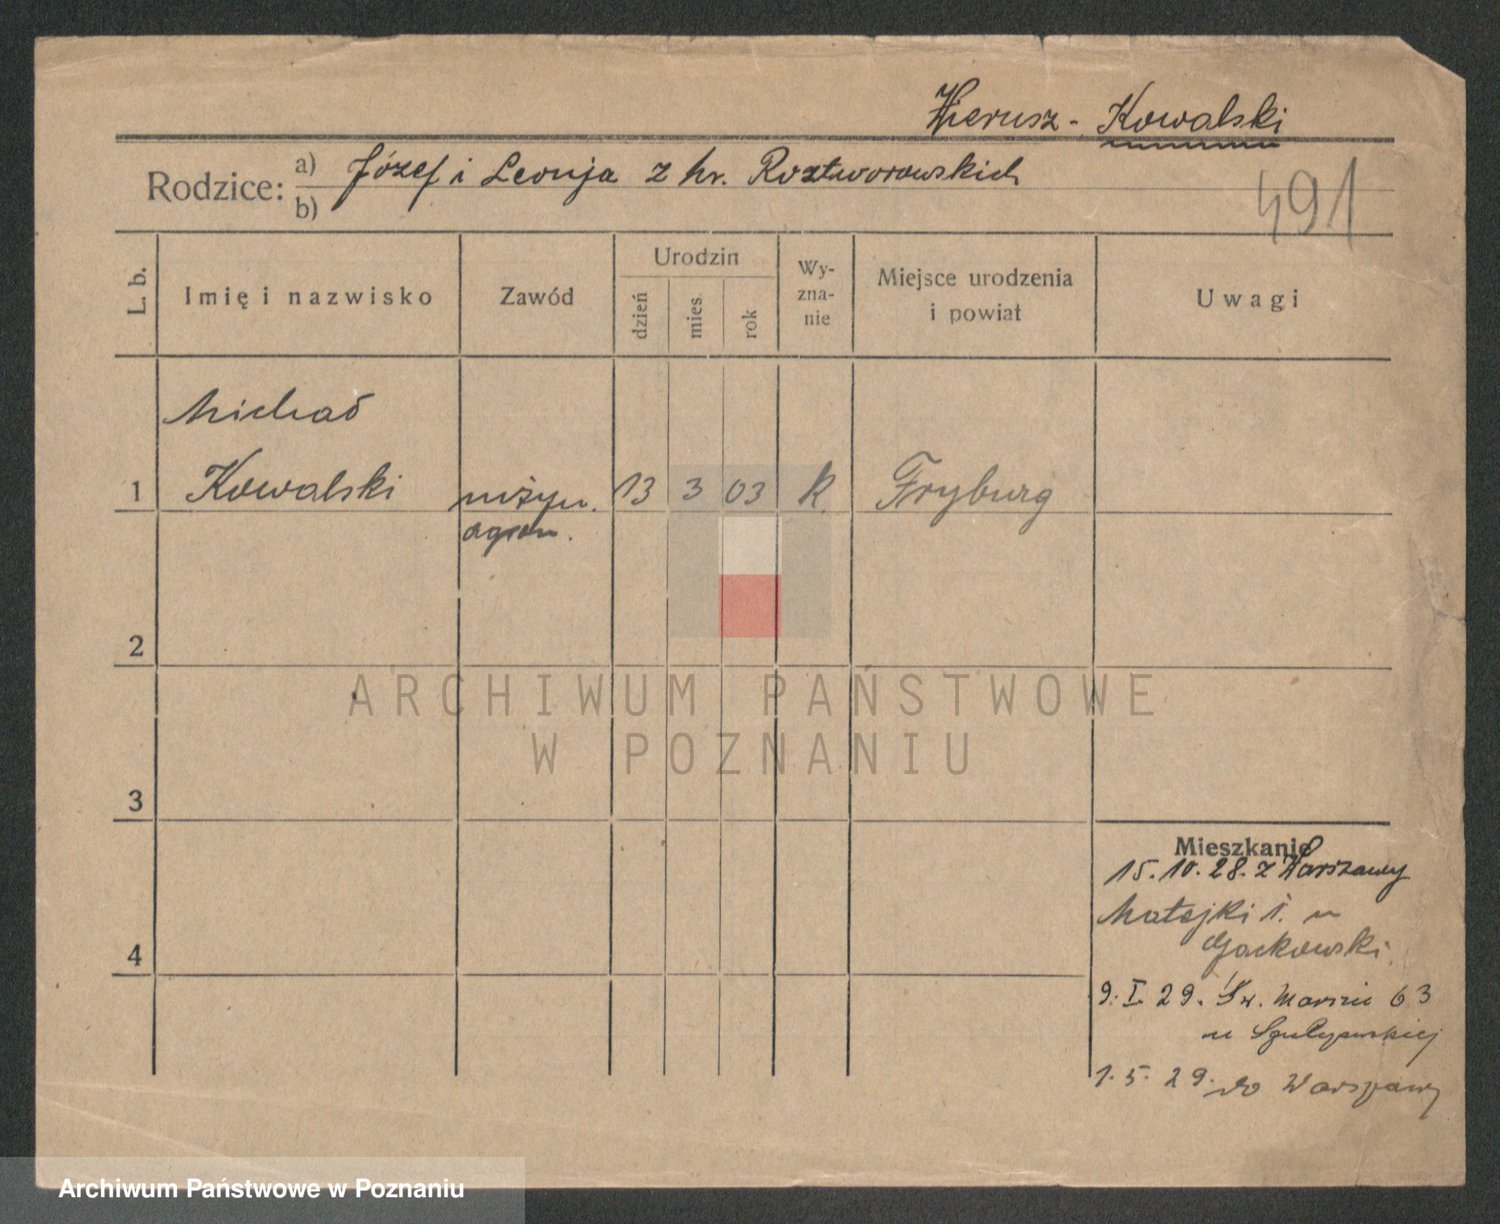 Wierusz - Kowalski
Rodzice: a) Józef i Leonja z hr. Roztworowskich
b)
491
L. b.
Imię i nazwisko
Zawód
Urodzin
dzień
mies.
rok
Wy-
zna-
nie
Miejsce urodzenia
i powiat
Uwagi
Michał
1 Kowalski inżyn. 13 3 03 R. Fryburg
agron.
2
3
4
Mieszkanie
15. 10. 28. z Warszawy
Matejki 1. u
Gackowski.
9. I. 29. Św. Marcin 63
u
1. 5. 29. do Warszawy
ARCHIWUM PAŃSTWOWE
W POZNANIU
Archiwum Państwowe w Poznaniu